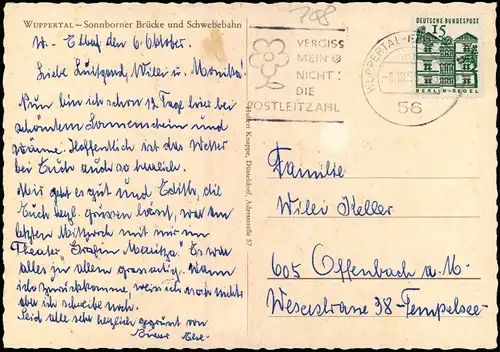 Wuppertal – Sonnborner Brücke und Schwebebahn
768
W.- Elbf. den 6. Oktober.
Liebe Luitgard, Willi u. Monika!
Nun bin ich schon 12 Tage hier bei
schönstem Sonnenschein und
Wärme. Hoffentlich ist das Wetter
bei Euch auch so herrlich.
Mir geht es gut und Edith, die
Euch herzl. grüssen lässt, war am
letzten Mittwoch mit mir im
Theater, "Gräfin Mariza". Es war
alles in allem grossartig. Wann
ich zurückkomme, weiss ich noch nicht,
aber ich schreibe noch.
Seid alle sehr herzlich gegrüsst von
Eurer Else.
Hubert Knappe, Düsseldorf, Adersstraße 57
VERGISS
MEIN
NICHT
DIE
POSTLEITZAHL
WUPPERTAL-E
56
DEUTSCHE BUNDESPOST
15
BERLIN-TEGEL
Familie
Willi Keller
605 Offenbach a. M.
Weserstrasse 38 - Tempelsee -